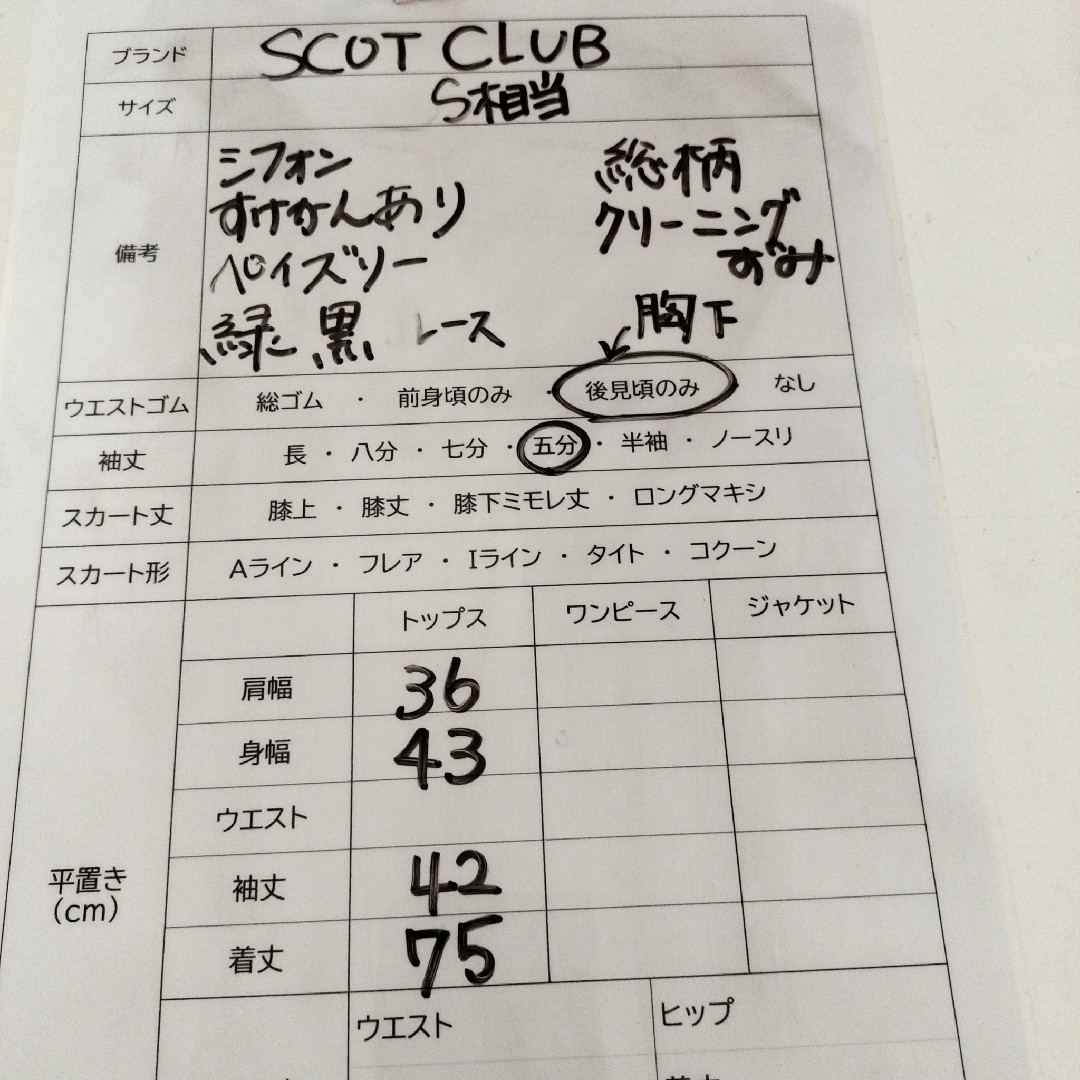 ブランド SCOT CLUB
サイズ S相当
備考
シフォン 総柄
すけかんあり クリーニング
ずみ
ペイズリー
緑 黒 レース 胸下
ウエストゴム 総ゴム ・ 前身頃のみ ・ 後見頃のみ なし
袖丈 長 ・ 八分 ・ 七分 ・ 五分 ・ 半袖 ・ ノースリ
スカート丈 膝上 ・ 膝丈 ・ 膝下ミモレ丈 ・ ロングマキシ
スカート形 Aライン ・ フレア ・ Iライン ・ タイト ・ コクーン
トップス ワンピース ジャケット
平置き
(cm)
肩幅 36
身幅 43
ウエスト
袖丈 42
着丈 75
ウエスト ヒップ